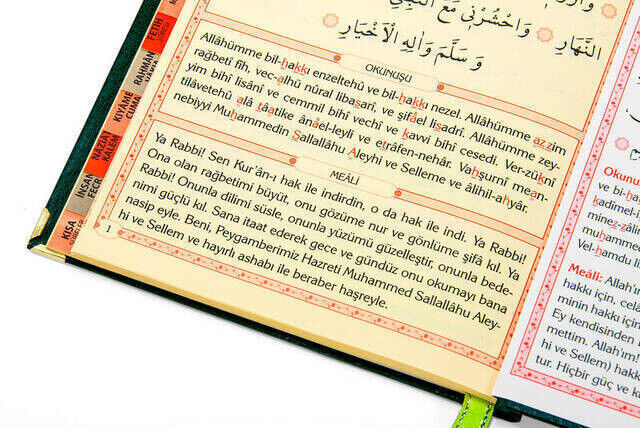 النَّهَارِ وَاحْشُرْنِي مَعَ النَّبِيِّ
وَسَلَّمَ وَاٰلِهِ الْاَخْيَارِ
OKUNUŞU
Allâhümme bil-hakkı enzeltehû ve bil-hakkı nezel. Allâhümme azzim
rağbetî fîh, vec-alhü nûral libasarî, ve şifâel lisadrî. Allâhümme zey-
yim bihî lisânî ve cemmil bihî vechî ve kavvi bihî cesedî. Ver-züknî
tilâvetehû alâ tâatike ânâel-leyli ve etrâfen-nehâr. Vahşurnî mean-
nebiyyi Muhammedin Sallallâhu Aleyhi ve Selleme ve âlihil-ahyâr.
MEÂLİ
Ya Rabbi! Sen Kur'ân-ı hak ile indirdin, o da hak ile indi. Ya Rabbi!
Ona olan rağbetimi büyüt, onu gözüme nur ve gönlüme şifâ kıl. Ya
Rabbi! Onunla dilimi süsle, onunla yüzümü güzelleştir, onunla bede-
nimi güçlü kıl. Sana itaat ederek gece ve gündüz onu okumayı bana
nasip eyle. Beni, Peygamberimiz Hazreti Muhammed Sallallâhu Aley-
hi ve Sellem ve hayırlı ashabı ile beraber haşreyle.
1
FETİH
RAHMAN
KIYAME
CUMA
NAZİAT
KALEM
İNSAN
FECR
KISA
Okunu
ve bi-h
kadîmel
minez-zâl
Muhamm
Vel-hamdu l
Meâli: Allah'ı
hakkı için, cel
minin hakkı iç
Ey kendisinden
mettim. Allah'ım!
hi ve Sellem) hakk
tur. Hiçbir güç ve k